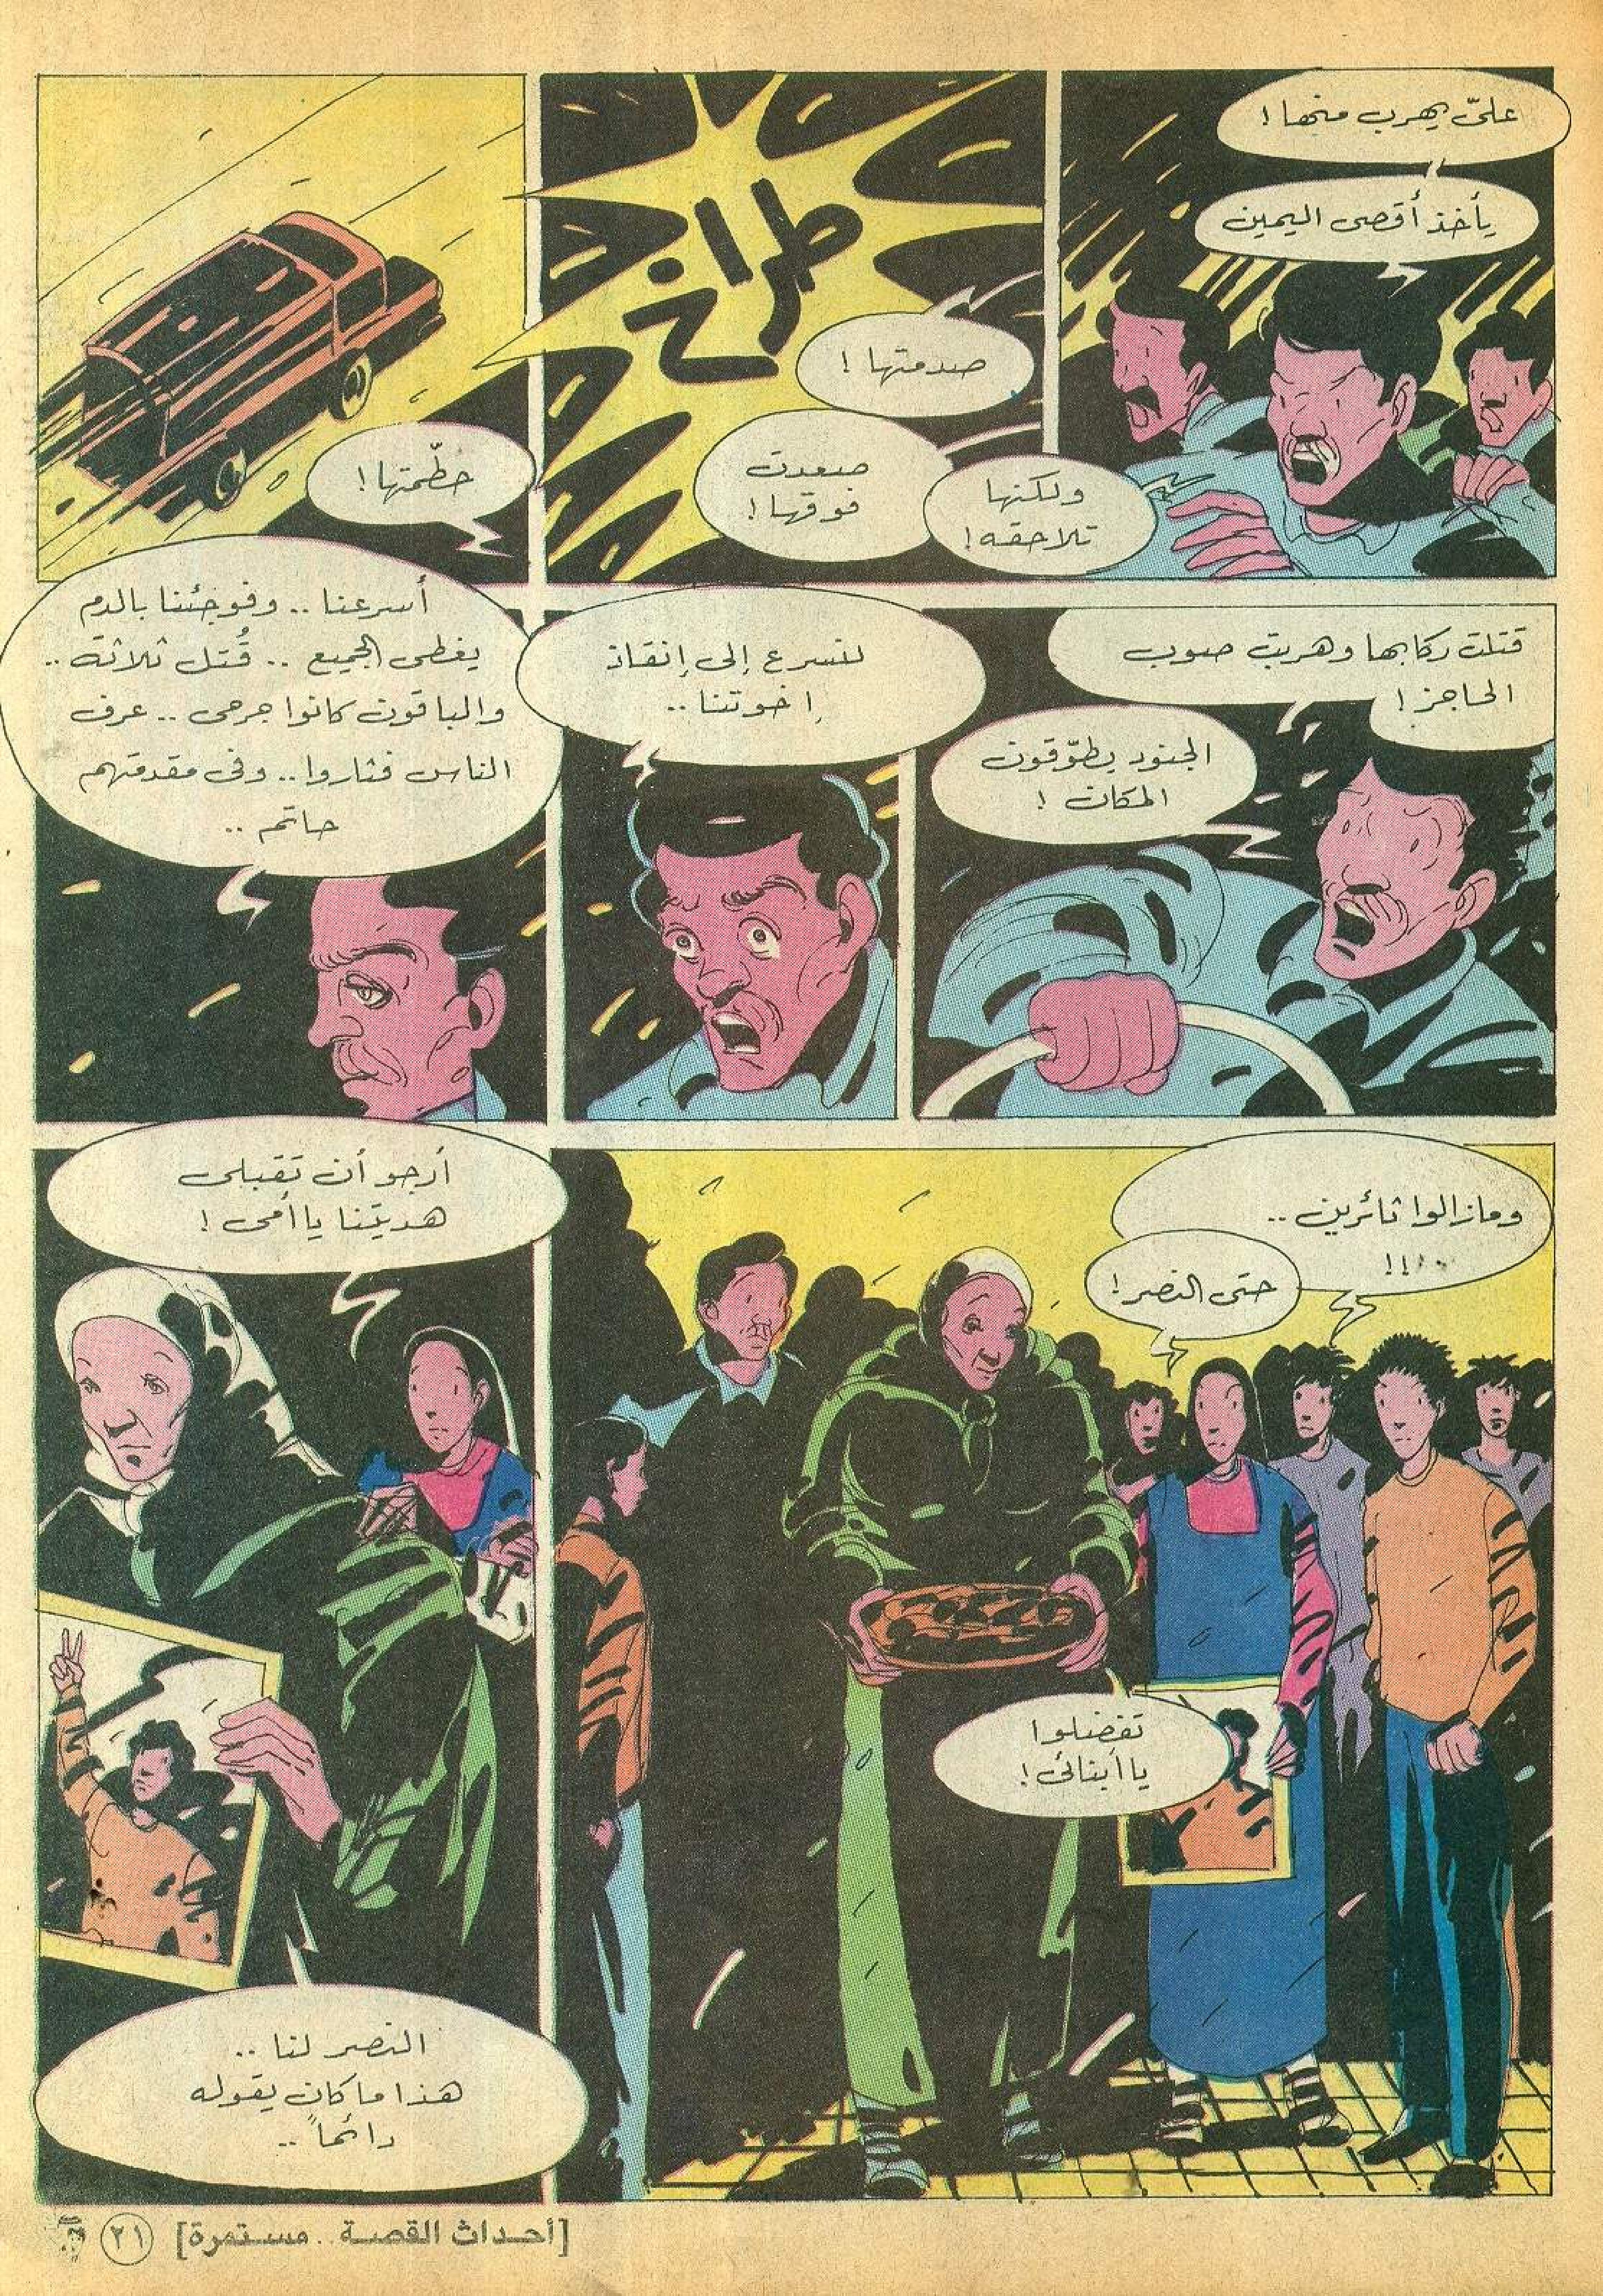 علىّ يهرب منها !
يأخذ أقصى اليمين
ولكنها
تلاحقه !
طراخ
صدمتها !
صعدت
فوقها !
حطّمتها !
قتلت ركابها وهربت صوب
الحاجز !
الجنود يطوّقون
المكان !
لنسرع إلى إنقاذ
إخوتنا ..
أسرعنا .. وفوجئنا بالدم
يغطى الجميع .. قُتل ثلاثة ..
والباقون كانوا جرحى .. عرف
الناس فثاروا .. وفى مقدمتهم
حاتم ..
ومازالوا ثائرين ..
!!
حتى النصر !
تفضلوا
يا أبنائى !
أرجو أن تقبلى
هديتنا يا أمى !
النصر لنا ..
هذا ما كان يقوله
دائماً ..
[أحداث القصة .. مستمرة] ٢١